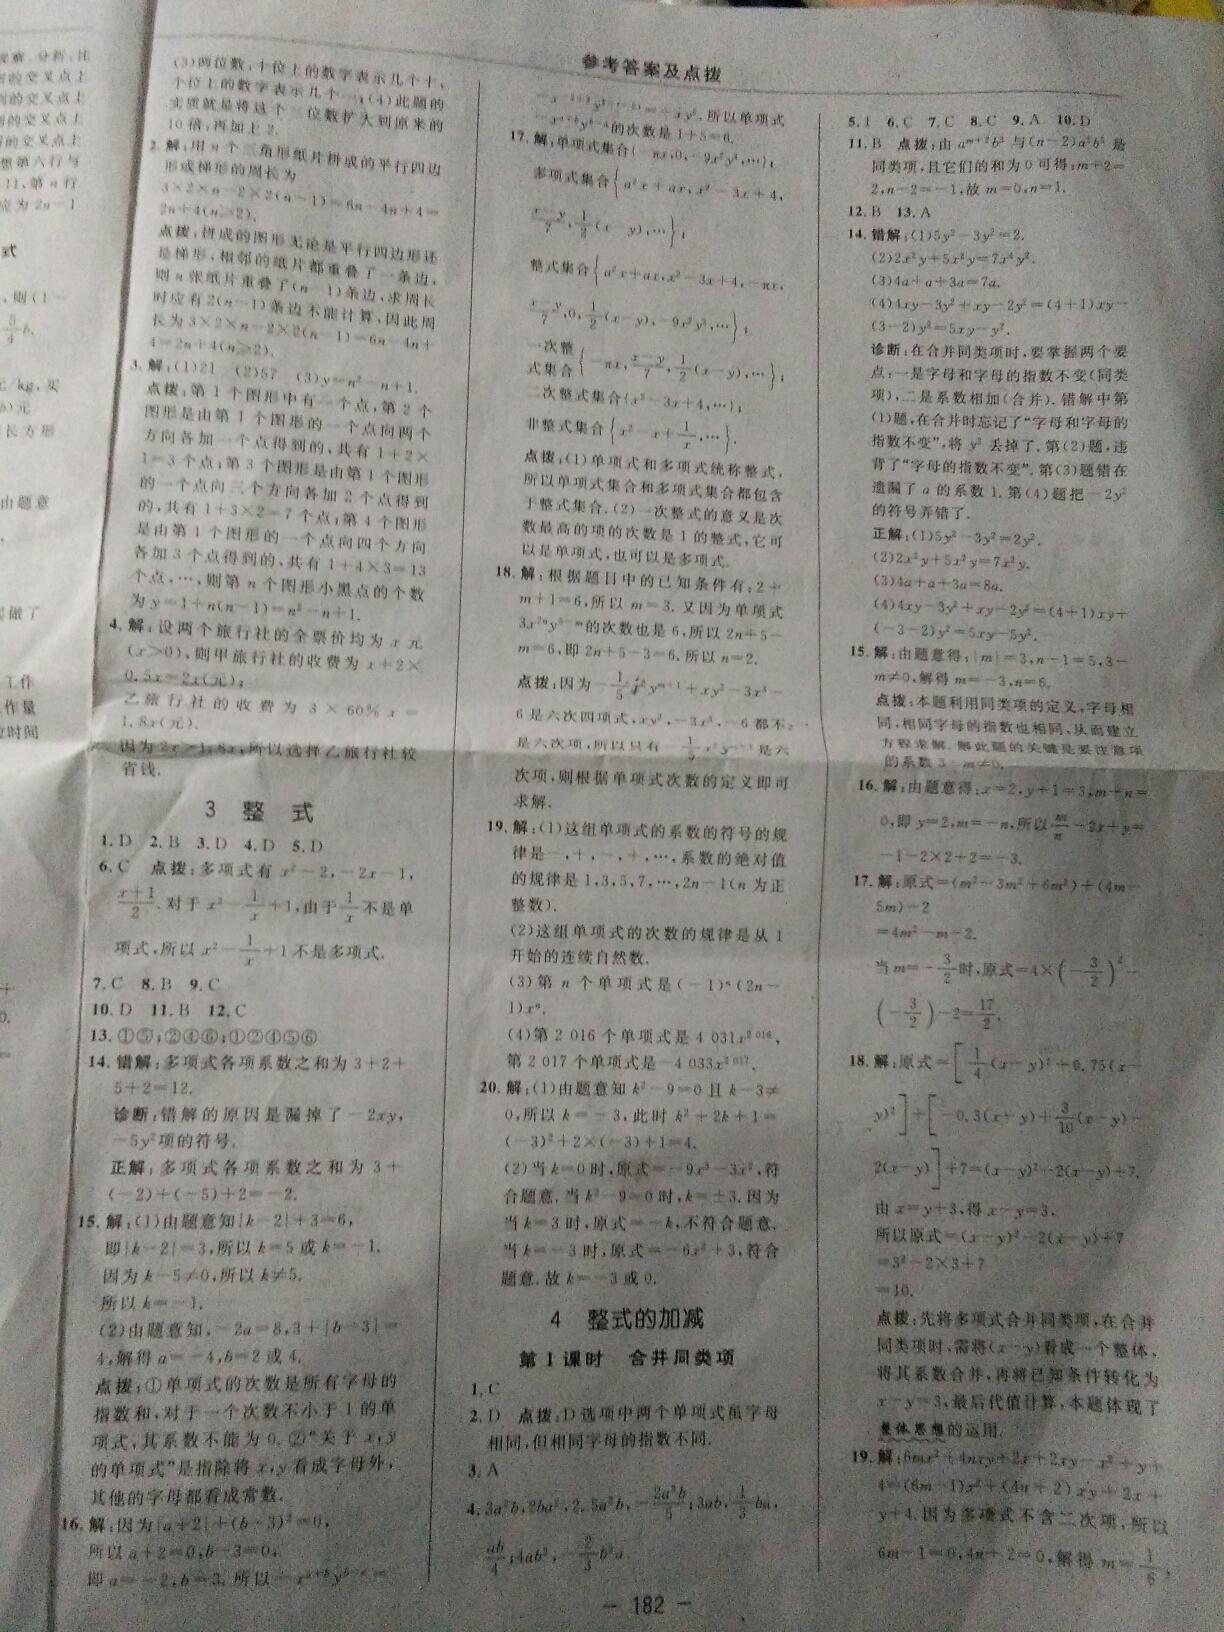 参考答案及点拨
(3)两位数,十位上的数字表示几个十,
个位上的数字表示几个一;(4)此题的
实质就是将这个一位数扩大到原来的
10倍,再加上2.
2.解:用n个三角形纸片拼成的平行四边
形或梯形的周长为
3×2×n-2×2(n-1)=6n-4n+4=
2n+4(n≥2).
点拨:拼成的图形无论是平行四边形还
是梯形,相邻的纸片都重叠了一条边,
则n张纸片重叠了(n-1)条边,求周长
时应有2(n-1)条边不能计算,因此周
长为3×2×n-2×2(n-1)=6n-4n+
4=2n+4(n≥2).
3.解:(1)21 (2)57 (3)y=n²-n+1.
点拨:第1个图形中有一个点,第2个
图形是由第1个图形的一个点向两个
方向各加一个点得到的,共有1+2×
1=3个点;第3个图形是由第1个图形
的一个点向三个方向各加2个点得到
的,共有1+3×2=7个点;第4个图形
是由第1个图形的一个点向四个方向
各加3个点得到的,共有1+4×3=13
个点,…,则第n个图形小黑点的个数
为y=1+n(n-1)=n²-n+1.
4.解:设两个旅行社的全票价均为x元
(x>0),则甲旅行社的收费为x+2×
0.5x=2x(元);
乙旅行社的收费为3×60%x=
1.8x(元).
因为2x>1.8x,所以选择乙旅行社较
省钱.
3 整 式
1.D 2.B 3.D 4.D 5.D
6.C 点拨:多项式有x²-2,-2x-1,
(x+1)/2.对于x²-1/x+1,由于1/x不是单
项式,所以x²-1/x+1不是多项式.
7.C 8.B 9.C
10.D 11.B 12.C
13.①⑤;②④⑥;①②④⑤⑥
14.错解:多项式各项系数之和为3+2+
5+2=12.
诊断:错解的原因是漏掉了-2xy,
-5y²项的符号.
正解:多项式各项系数之和为3+
(-2)+(-5)+2=-2.
15.解:(1)由题意知|k-2|+3=6,
即|k-2|=3,所以k=5或k=-1.
因为k-5≠0,所以k≠5.
所以k=-1.
(2)由题意知,-2a=8,3+|b-3|=
4,解得a=-4,b=2或4.
点拨:①单项式的次数是所有字母的
指数和,对于一个次数不小于1的单
项式,其系数不能为0.②"关于x,y
的单项式"是指除将x,y看成字母外,
其他的字母都看成常数.
16.解:因为|a+2|+(b-3)²=0,
所以a+2=0,b-3=0,
即a=-2,b=3.所以
=-xy⁵.所以单项式
的次数是1+5=6.
17.解:单项式集合{-πx,0,-9x²y³,…};
多项式集合{a²x+ax,x²-3x+4,
(x-y)/7,1/2(x-y),…};
整式集合{a²x+ax,x²-3x+4,-πx,
(x-y)/7,0,1/2(x-y),-9x²y³,…};
一次整
式集合{-πx,(x-y)/7,1/2(x-y),…};
二次整式集合{x²-3x+4,…};
非整式集合{x²-x+1/x,…}.
点拨:(1)单项式和多项式统称整式,
所以单项式集合和多项式集合都包含
于整式集合.(2)一次整式的意义是次
数最高的项的次数是1的整式,它可
以是单项式,也可以是多项式.
18.解:根据题目中的已知条件有:2+
m+1=6,所以m=3.又因为单项式
3x²ⁿy⁵⁻ᵐ的次数也是6,所以2n+5-
m=6,即2n+5-3=6.所以n=2.
点拨:因为-1/5x²yᵐ⁺¹+xy²-3x³-
6是六次四项式,xy²,-3x³,-6都不
是六次项,所以只有-1/5x²yᵐ⁺¹是六
次项,则根据单项式次数的定义即可
求解.
19.解:(1)这组单项式的系数的符号的规
律是-,+,-,+,…,系数的绝对值
的规律是1,3,5,7,…,2n-1(n为正
整数).
(2)这组单项式的次数的规律是从1
开始的连续自然数.
(3)第n个单项式是(-1)ⁿ(2n-
1)xⁿ.
(4)第2 016个单项式是4 031x²⁰¹⁶,
第2 017个单项式是-4 033x²⁰¹⁷.
20.解:(1)由题意知k²-9=0且k-3≠
0,所以k=-3,此时k²+2k+1=
(-3)²+2×(-3)+1=4.
(2)当k=0时,原式=-9x³-3x²,符
合题意.当k²-9=0时,k=±3.因为
当k=3时,原式=-k,不符合题意.
当k=-3时,原式=-6x²+3,符合
题意.故k=-3或0.
4 整式的加减
第1课时 合并同类项
1.C
2.D 点拨:D选项中两个单项式虽字母
相同,但相同字母的指数不同.
3.A
4.3a²b,2ba²,2.5a²b,-2a²b/5;3ab,1/3ba,
ab/4;4ab²,-2/3b²a
5.1 6.C 7.C 8.C 9.A 10.D
11.B 点拨:由aᵐ⁺²b³与(n-2)a²b³是
同类项,且它们的和为0可得:m+2=
2,n-2=-1,故m=0,n=1.
12.B 13.A
14.错解:(1)5y²-3y²=2.
(2)2x²y+5x²y=7x⁴y².
(3)4a+a+3a=7a.
(4)4xy-3y²+xy-2y²=(4+1)xy-
(3-2)y²=5xy-y².
诊断:在合并同类项时,要掌握两个要
点:一是字母和字母的指数不变(同类
项),二是系数相加(合并).错解中第
(1)题,在合并时忘记了"字母和字母的
指数不变",将y²丢掉了.第(2)题,违
背了"字母的指数不变".第(3)题错在
遗漏了a的系数1.第(4)题把-2y²
的符号弄错了.
正解:(1)5y²-3y²=2y².
(2)2x²y+5x²y=7x²y.
(3)4a+a+3a=8a.
(4)4xy-3y²+xy-2y²=(4+1)xy+
(-3-2)y²=5xy-5y².
15.解:由题意得:|m|=3,n-1=5,3-
m≠0,解得m=-3,n=6.
点拨:本题利用同类项的定义,字母相
同,相同字母的指数也相同,从而建立
方程求解.解此题的关键是要注意项
的系数3-m≠0.
16.解:由题意得:x=2,y+1=3,m+n=
0,即y=2,m=-n,所以m/n-2x+y=
-1-2×2+2=-3.
17.解:原式=(m²-3m²+6m²)+(4m-
5m)-2
=4m²-m-2.
当m=-3/2时,原式=4×(-3/2)²-
(-3/2)-2=17/2.
18.解:原式=[1/4(x-y)²+0.75(x-
y)²]+[-0.3(x-y)+3/10(x-y)-
2(x-y)]+7=(x-y)²-2(x-y)+7.
由x=y+3,得x-y=3,
所以原式=(x-y)²-2(x-y)+7
=3²-2×3+7
=10.
点拨:先将多项式合并同类项,在合并
同类项时,需将(x-y)看成一个整体,
将其系数合并,再将已知条件转化为
x-y=3,最后代值计算,本题体现了
整体思想的运用.
19.解:6mx²+4nxy+2x+2xy-x²+y+
4=(6m-1)x²+(4n+2)xy+2x+
y+4.因为多项式不含二次项,所以
6m-1=0,4n+2=0,解得m=1/6,
- 182 -